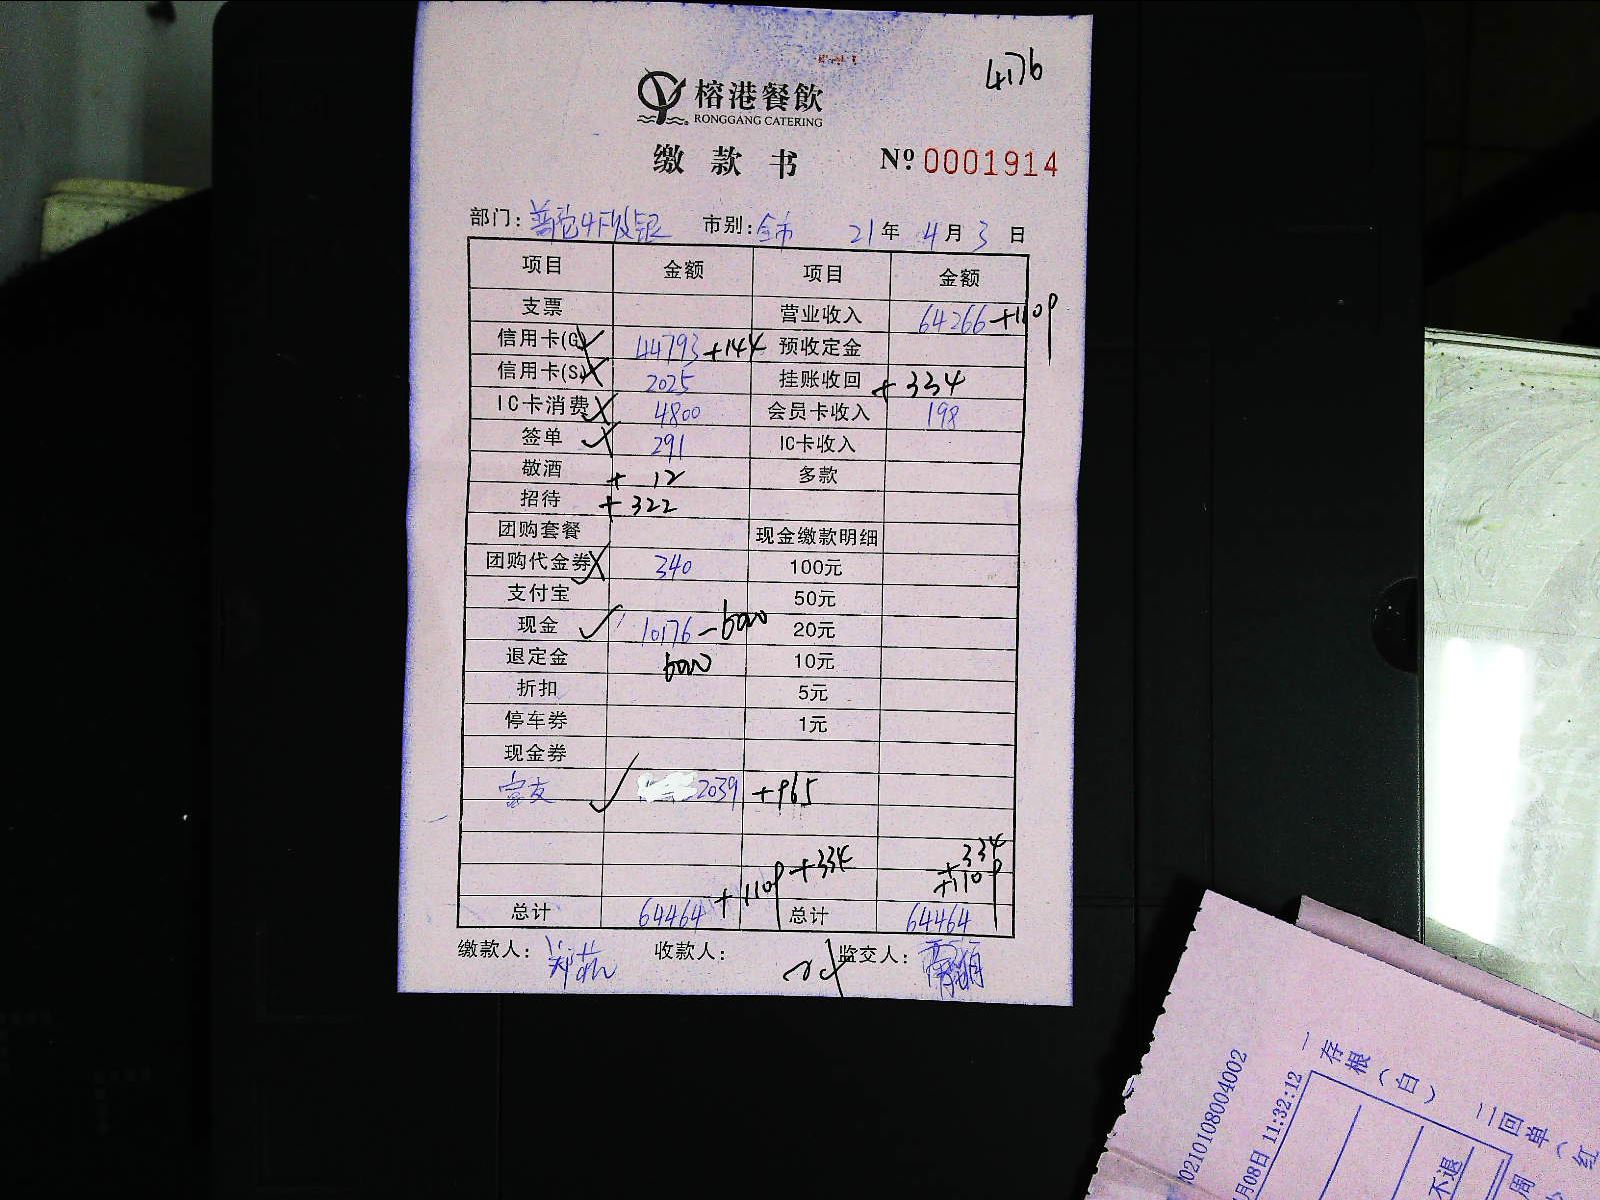 4176
榕港餐飲
RONGGANG CATERING
缴款书 Nº 0001914
部门: 普陀 市别: 全市 21年 4月 3日
项目 金额 项目 金额
支票 营业收入 64266 +1109
信用卡(G) 44793 +144 预收定金
信用卡(S) 2025 挂账收回 +334
IC卡消费 4800 会员卡收入 198
签单 291 IC卡收入
敬酒 + 12 多款
招待 + 322
团购套餐 现金缴款明细
团购代金券 340 100元
支付宝 50元
现金 10176 -6000 20元
退定金 6000 10元
折扣 5元
停车券 1元
现金券
富友 2039 +965
+334
+1109 +334 +1109
总计 64464 总计 64464
缴款人: 收款人: 监交人:
一存根(白) 二回单(红
0210108004002
月08日 11:32:12
不退